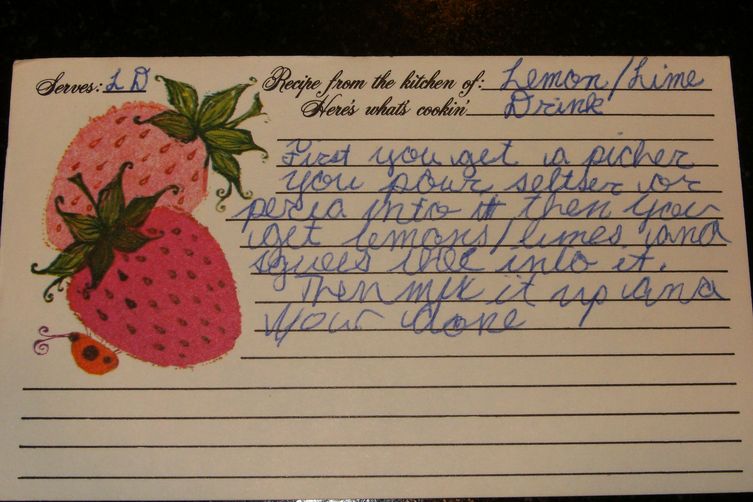 Serves: LD Recipe from the kitchen of: Lemon/Lime
Here's what's cookin' Drink
First you get a picher
you pour seltser or
peria into it then you
get lemons/limes and
squees into it.
Then mix it up and
your done